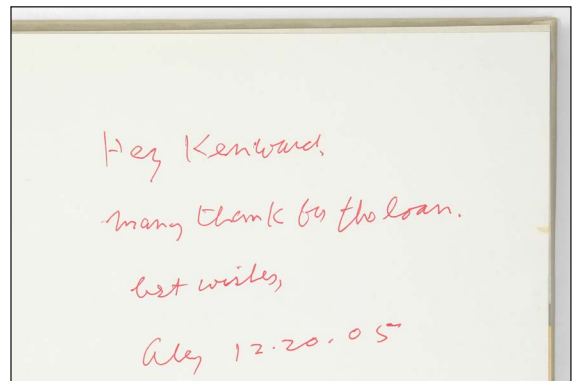 Hey Kenward,
many thank for the loan.
best wishes,
Alex 12.20.05